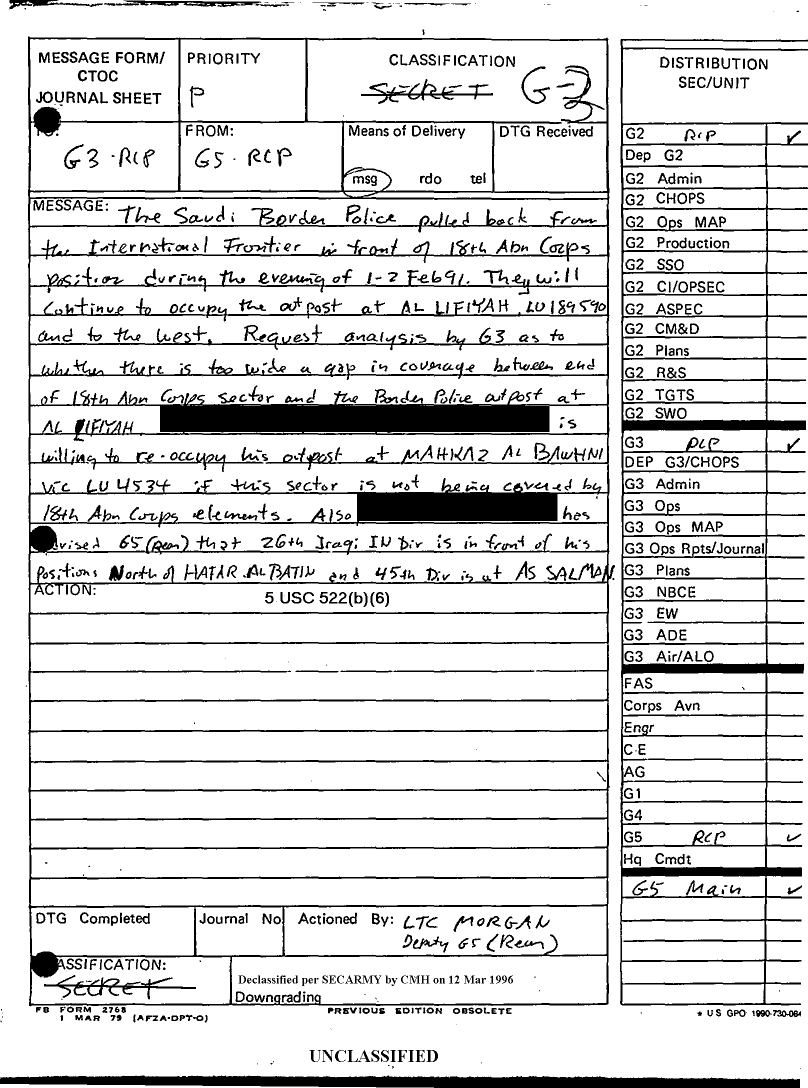 MESSAGE FORM/
CTOC
JOURNAL SHEET
PRIORITY
P
CLASSIFICATION
SECRET G-3
TO:
G3 · RCP
FROM:
G5 · RCP
Means of Delivery
msg rdo tel
DTG Received
MESSAGE: The Saudi Border Police pulled back from
the International Frontier in front of 18th Abn Corps
position during the evening of 1-2 Feb 91. They will
continue to occupy the outpost at AL LIFIYAH, LU189590
and to the west. Request analysis by G3 as to
whether there is too wide a gap in coverage between end
of 18th Abn Corps sector and the Border Police outpost at
AL LIFIYAH. is
willing to re-occupy his outpost at MAHKAZ AL BAWHNI
Vic LU4534 if this sector is not being covered by
18th Abn Corps elements. Also has
vised G5 (Rear) that 26th Iraqi IN Div is in front of his
positions North of HAFAR AL BATIN and 45th Div is at AS SALMAN.
ACTION:
5 USC 522(b)(6)
DTG Completed
Journal No
Actioned By: LTC MORGAN
Deputy G5 (Rear)
ASSIFICATION:
SECRET
Declassified per SECARMY by CMH on 12 Mar 1996
Downgrading
FB FORM 2768
1 MAR 79 (AFZA-DPT-O)
PREVIOUS EDITION OBSOLETE
DISTRIBUTION
SEC/UNIT
G2 RCP ✓
Dep G2
G2 Admin
G2 CHOPS
G2 Ops MAP
G2 Production
G2 SSO
G2 CI/OPSEC
G2 ASPEC
G2 CM&D
G2 Plans
G2 R&S
G2 TGTS
G2 SWO
G3 RCP ✓
DEP G3/CHOPS
G3 Admin
G3 Ops
G3 Ops MAP
G3 Ops Rpts/Journal
G3 Plans
G3 NBCE
G3 EW
G3 ADE
G3 Air/ALO
FAS
Corps Avn
Engr
C-E
AG
G1
G4
G5 RCP ✓
Hq Cmdt
G5 Main ✓
* US GPO 1990-730-064
UNCLASSIFIED